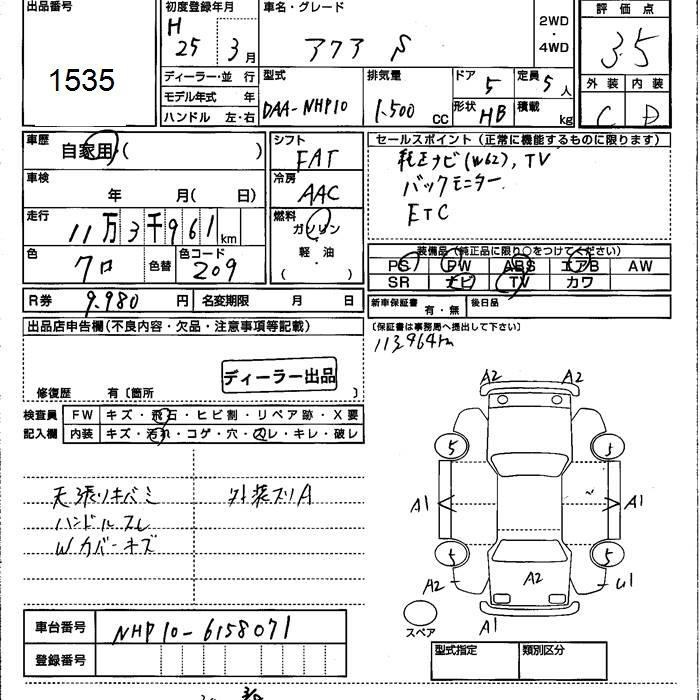 出品番号
1535
初度登録年月
H
25 3月
車名・グレード
アクア S
2WD
・
4WD
評価点
3.5
外装 内装
C D
ディーラー・並 行
モデル年式 年
ハンドル 左・右
型式
DAA-NHP10
排気量
1.500 CC
ドア 5
形状 HB
定員 5 人
積載 kg
車歴
自家用・( )
シフト
FAT
セールスポイント (正常に機能するものに限ります)
純正ナビ(W62), TV
バックモニター
ETC
車検
年 月( 日)
冷房
AAC
走行
11万3千961km
燃料
ガソリン
軽・油
( )
色
クロ
色替
色コード
209
装備品 (純正品に限り○をつけてください)
PS PW ABS エアB AW
SR ナビ TV カワ
R券 9.980 円 名変期限 月 日
新車保証書 有・無 後日品
(保証書は事務局へ提出して下さい)
113,964km
出品店申告欄(不良内容・欠品・注意事項等記載)
ディーラー出品
修復歴 有〔箇所 〕
検査員
記入欄
FW キズ・飛石・ヒビ割・リペア跡・X要
内装 キズ・汚れ・コゲ・穴・スレ・キレ・破レ
天張リキバミ 外装スリA
ハンドルスレ
Wカバーキズ
A2 A2
5 5
A1 A1
5 5
A2 A2 U1
A1
スペア
車台番号 NHP10-6158071
登録番号
型式指定 類別区分